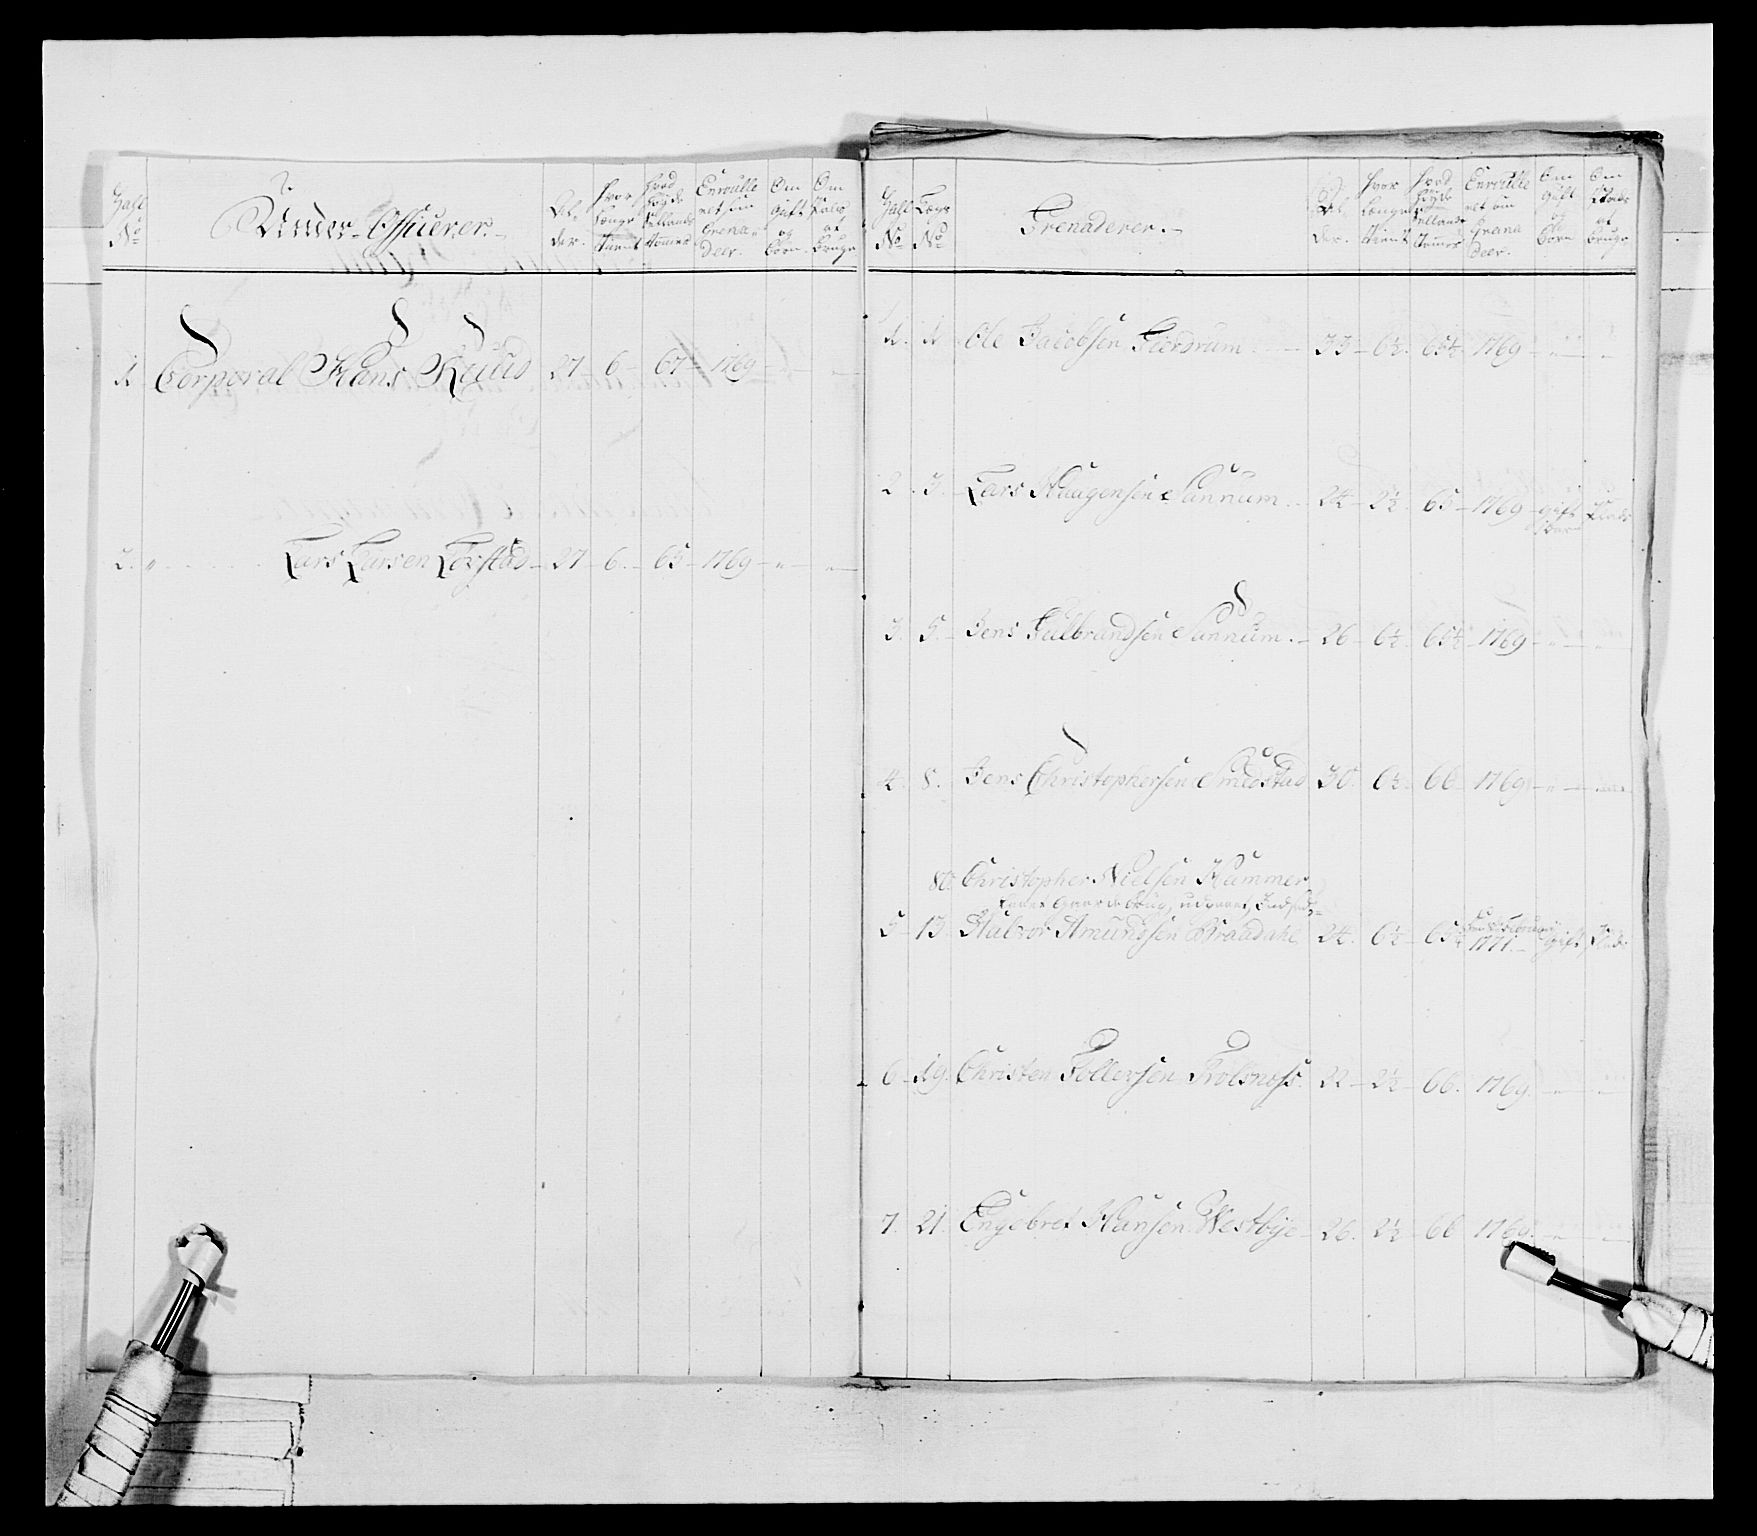 Zahl No
Under-Officerer.
Al-der.
Hvor længe tient
Hvad Høyde Sellands Tommer
Enroulleret som Grenadeer.
Om Gift og Børn
Om Plads at bruge
1. Corporal Hans Ruud 27 - 6 - 67 - 1769 - " - " -
2. " Lars Larsen Torstad - 27 - 6 - 65 - 1769 - " - " -
Zahl No
Lægs No
Grenaderer.
Al-der.
Hvor længe tient
Hvad Høyde Sellands Tommer
Enroulleret som Grenadeer.
Om Gift og Børn
Om Plads at bruge
1. 1. Ole Jacobsen Gierdrum - 33 - 6½ - 65½ 1769 - " - " -
2. 3. Lars Haagensen Sannum - 24 - 2½ - 65 - 1769 - gift Plads
3. 5. Jens Gulbrandsen Sannum - 26 - 6½ - 65½ - 1769 - " - " -
4. 8. Jens Christophersen Smedstad 30. 6½ - 66 1769 - " - " -
80. Christopher Nielsen Hammer
5 - 13 Halvor Amundsen Braadahl 24. 6½ - 65¼ 1771. - Gift, Plads
6 - 19. Christen Tollevsen Trolsnæss. 22 - 2½ - 66. 1769. - " - " -
7. 21. Engebret Hansen Westbye - 26. 2½ - 66 1769. - " - " -